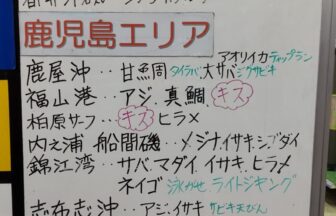 鹿児島エリア
アオリイカティップラン
鹿屋沖‥甘鯛周タイラバ大サバジグサビキ
福山港‥アジ、真鯛、キス
柏原サーフ‥キス ヒラメ
内之浦 船間磯‥メジナ、イサキ、シブダイ
錦江湾‥サバ、マダイ イサキ、ヒラメ
ネイゴ 泳がせ ライトジギング
志布志沖‥アジ、イサキ サビキ天びん